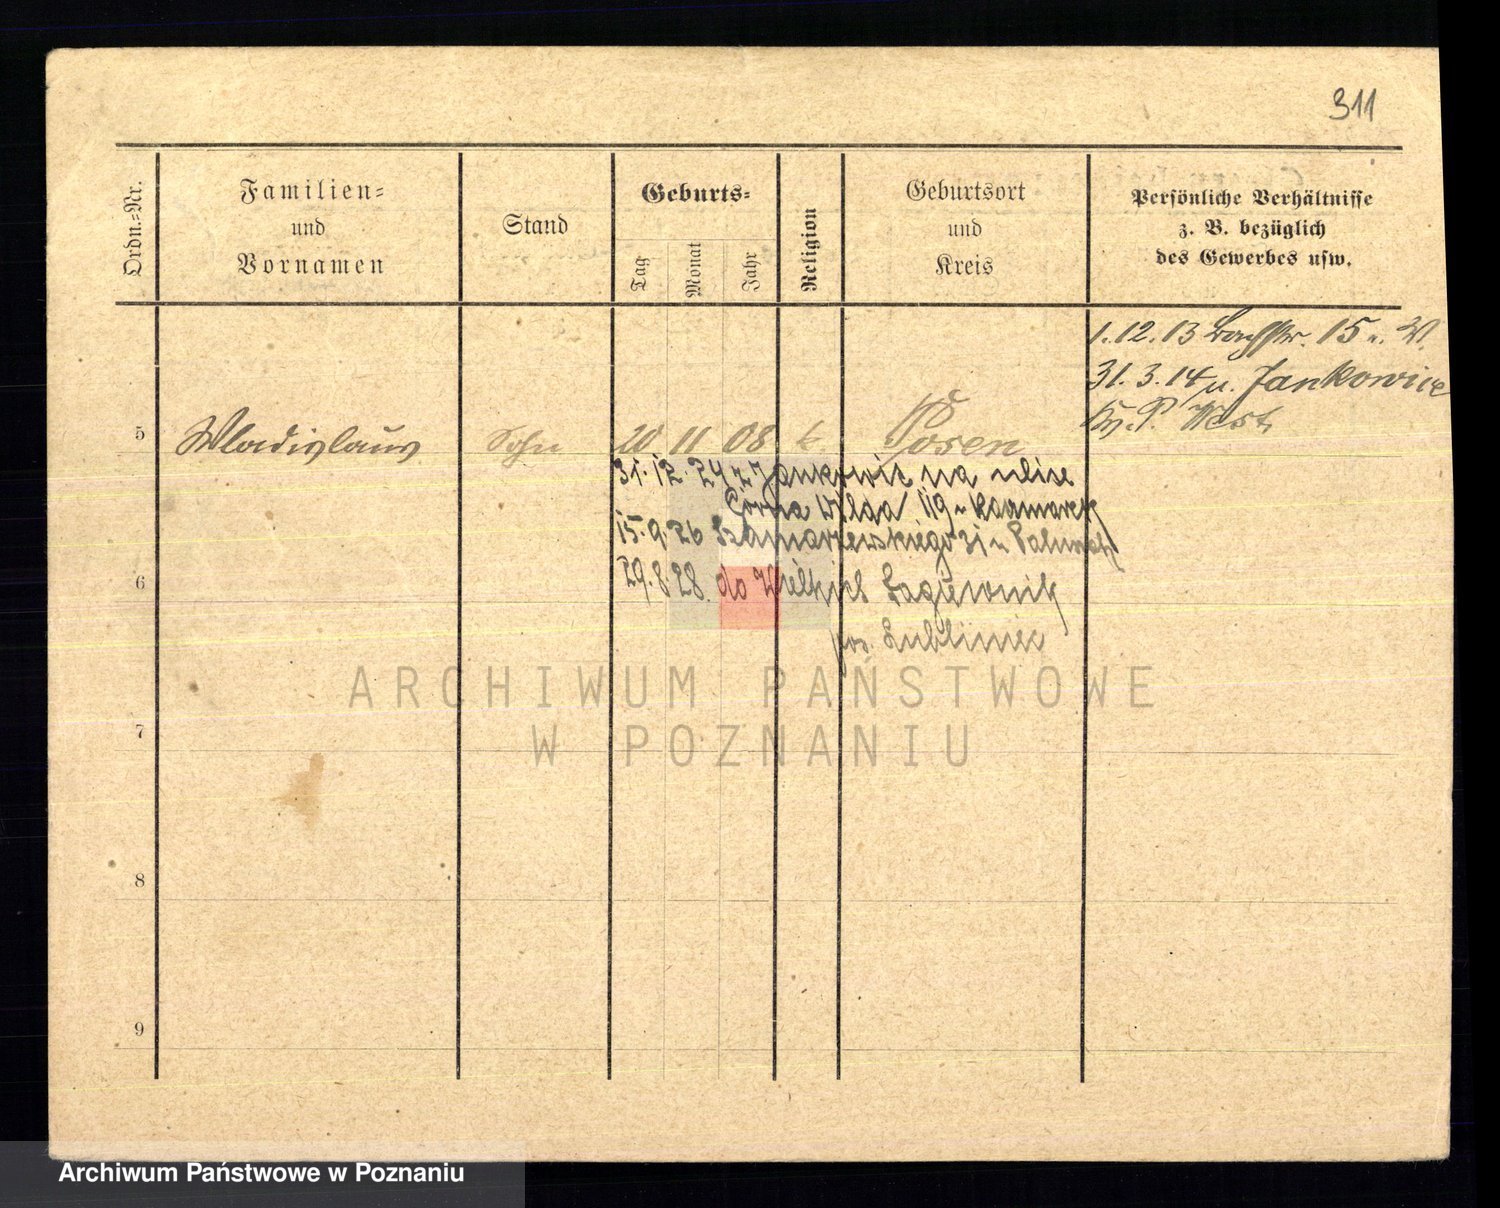 311
Ordn.-Nr.
Familien-
und
Vornamen
Stand
Geburts-
Tag
Monat
Jahr
Religion
Geburtsort
und
Kreis
Persönliche Verhältnisse
z. B. bezüglich
des Gewerbes usw.
1.12.13 15 u. W.
31.3.14 u. Jankowice
Kr. P. West.
5 Wladislaus Sohn 20 11 08 k. Posen
31.12.24 z Jankowic na ulice
Górna Wilda 119 u Kaczmarek
15.9.26 Szamarzewskiego 31 u
6
29.8.28. do Wielkich Łagiewnik
pow. Lubliniec
ARCHIWUM PAŃSTWOWE
W POZNANIU
7
8
9
Archiwum Państwowe w Poznaniu